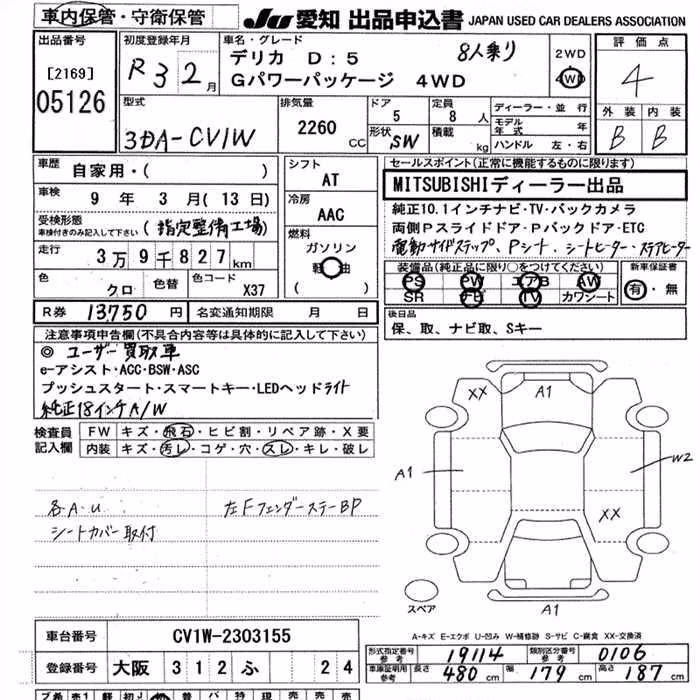 車内保管・守衛保管
JU 愛知 出品申込書 JAPAN USED CAR DEALERS ASSOCIATION
出品番号
[2169]
05126
初度登録年月
R3 2月
車名・グレード
デリカ D:5 8人乗り
Gパワーパッケージ 4WD
2WD
4WD
評価点
4
外装 内装
B B
型式
3DA-CV1W
排気量
2260 CC
ドア
5
形状 SW
定員
8 人
積載 kg
ディーラー・並行
モデル年式 年
ハンドル 左・右
車歴 自家用・( )
車検 9年 3月(13日)
受検形態
車検付きのみ記入して下さい (指定整備工場)
走行 3万9千827km
色 クロ 色替 色コード X37
シフト
AT
冷房
AAC
燃料
ガソリン
軽油
( )
R券 13750円 名変通知期限 月 日
セールスポイント(正常に機能するものに限ります)
MITSUBISHIディーラー出品
純正10.1インチナビ・TV・バックカメラ
両側Pスライドドア・Pバックドア・ETC
電動サイドステップ、Pシート、シートヒーター・ステアヒーター
装備品(純正品に限り○をつけてください)
PS PW エアB AW
SR ナビ TV カワシート
新車保証書
有・無
後日品
保、取、ナビ取、Sキー
注意事項申告欄(不具合内容等は具体的に記入して下さい)
◎ ユーザー買取車
e-アシスト・ACC・BSW・ASC
プッシュスタート・スマートキー・LEDヘッドライト
純正18インチA/W
検査員記入欄
FW キズ・飛石・ヒビ割・リペア跡・X要
内装 キズ・汚レ・コゲ・穴・スレ・キレ・破レ
各A・U 左FフェンダーステーBP
シートカバー取付
XX A1
A1 W2
XX
スペア A1
A-キズ E-エクボ U-凹み W-補修跡 S-サビ C-腐食 XX-交換済
車台番号 CV1W-2303155
登録番号 大阪 312 ふ 24
形式指定番号 参考 19114 類別区分番号 参考 0106
車庫証明用 参考 長さ 480 cm 幅 179 cm 高さ 187 cm